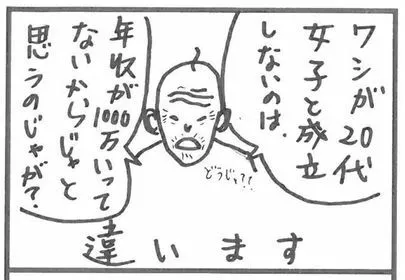 ワシが20代
女子と成立
しないのは、
年収が1000万いって
ないからじゃと
思うのじゃが？
どうじゃ？！
違います